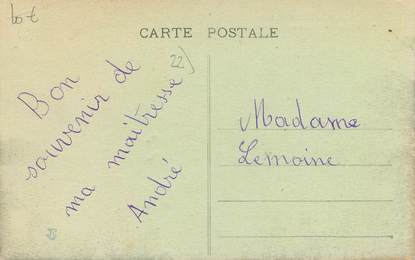 CARTE POSTALE
22)
Bon
souvenir de
ma maitresse
André
Madame
Lemoine